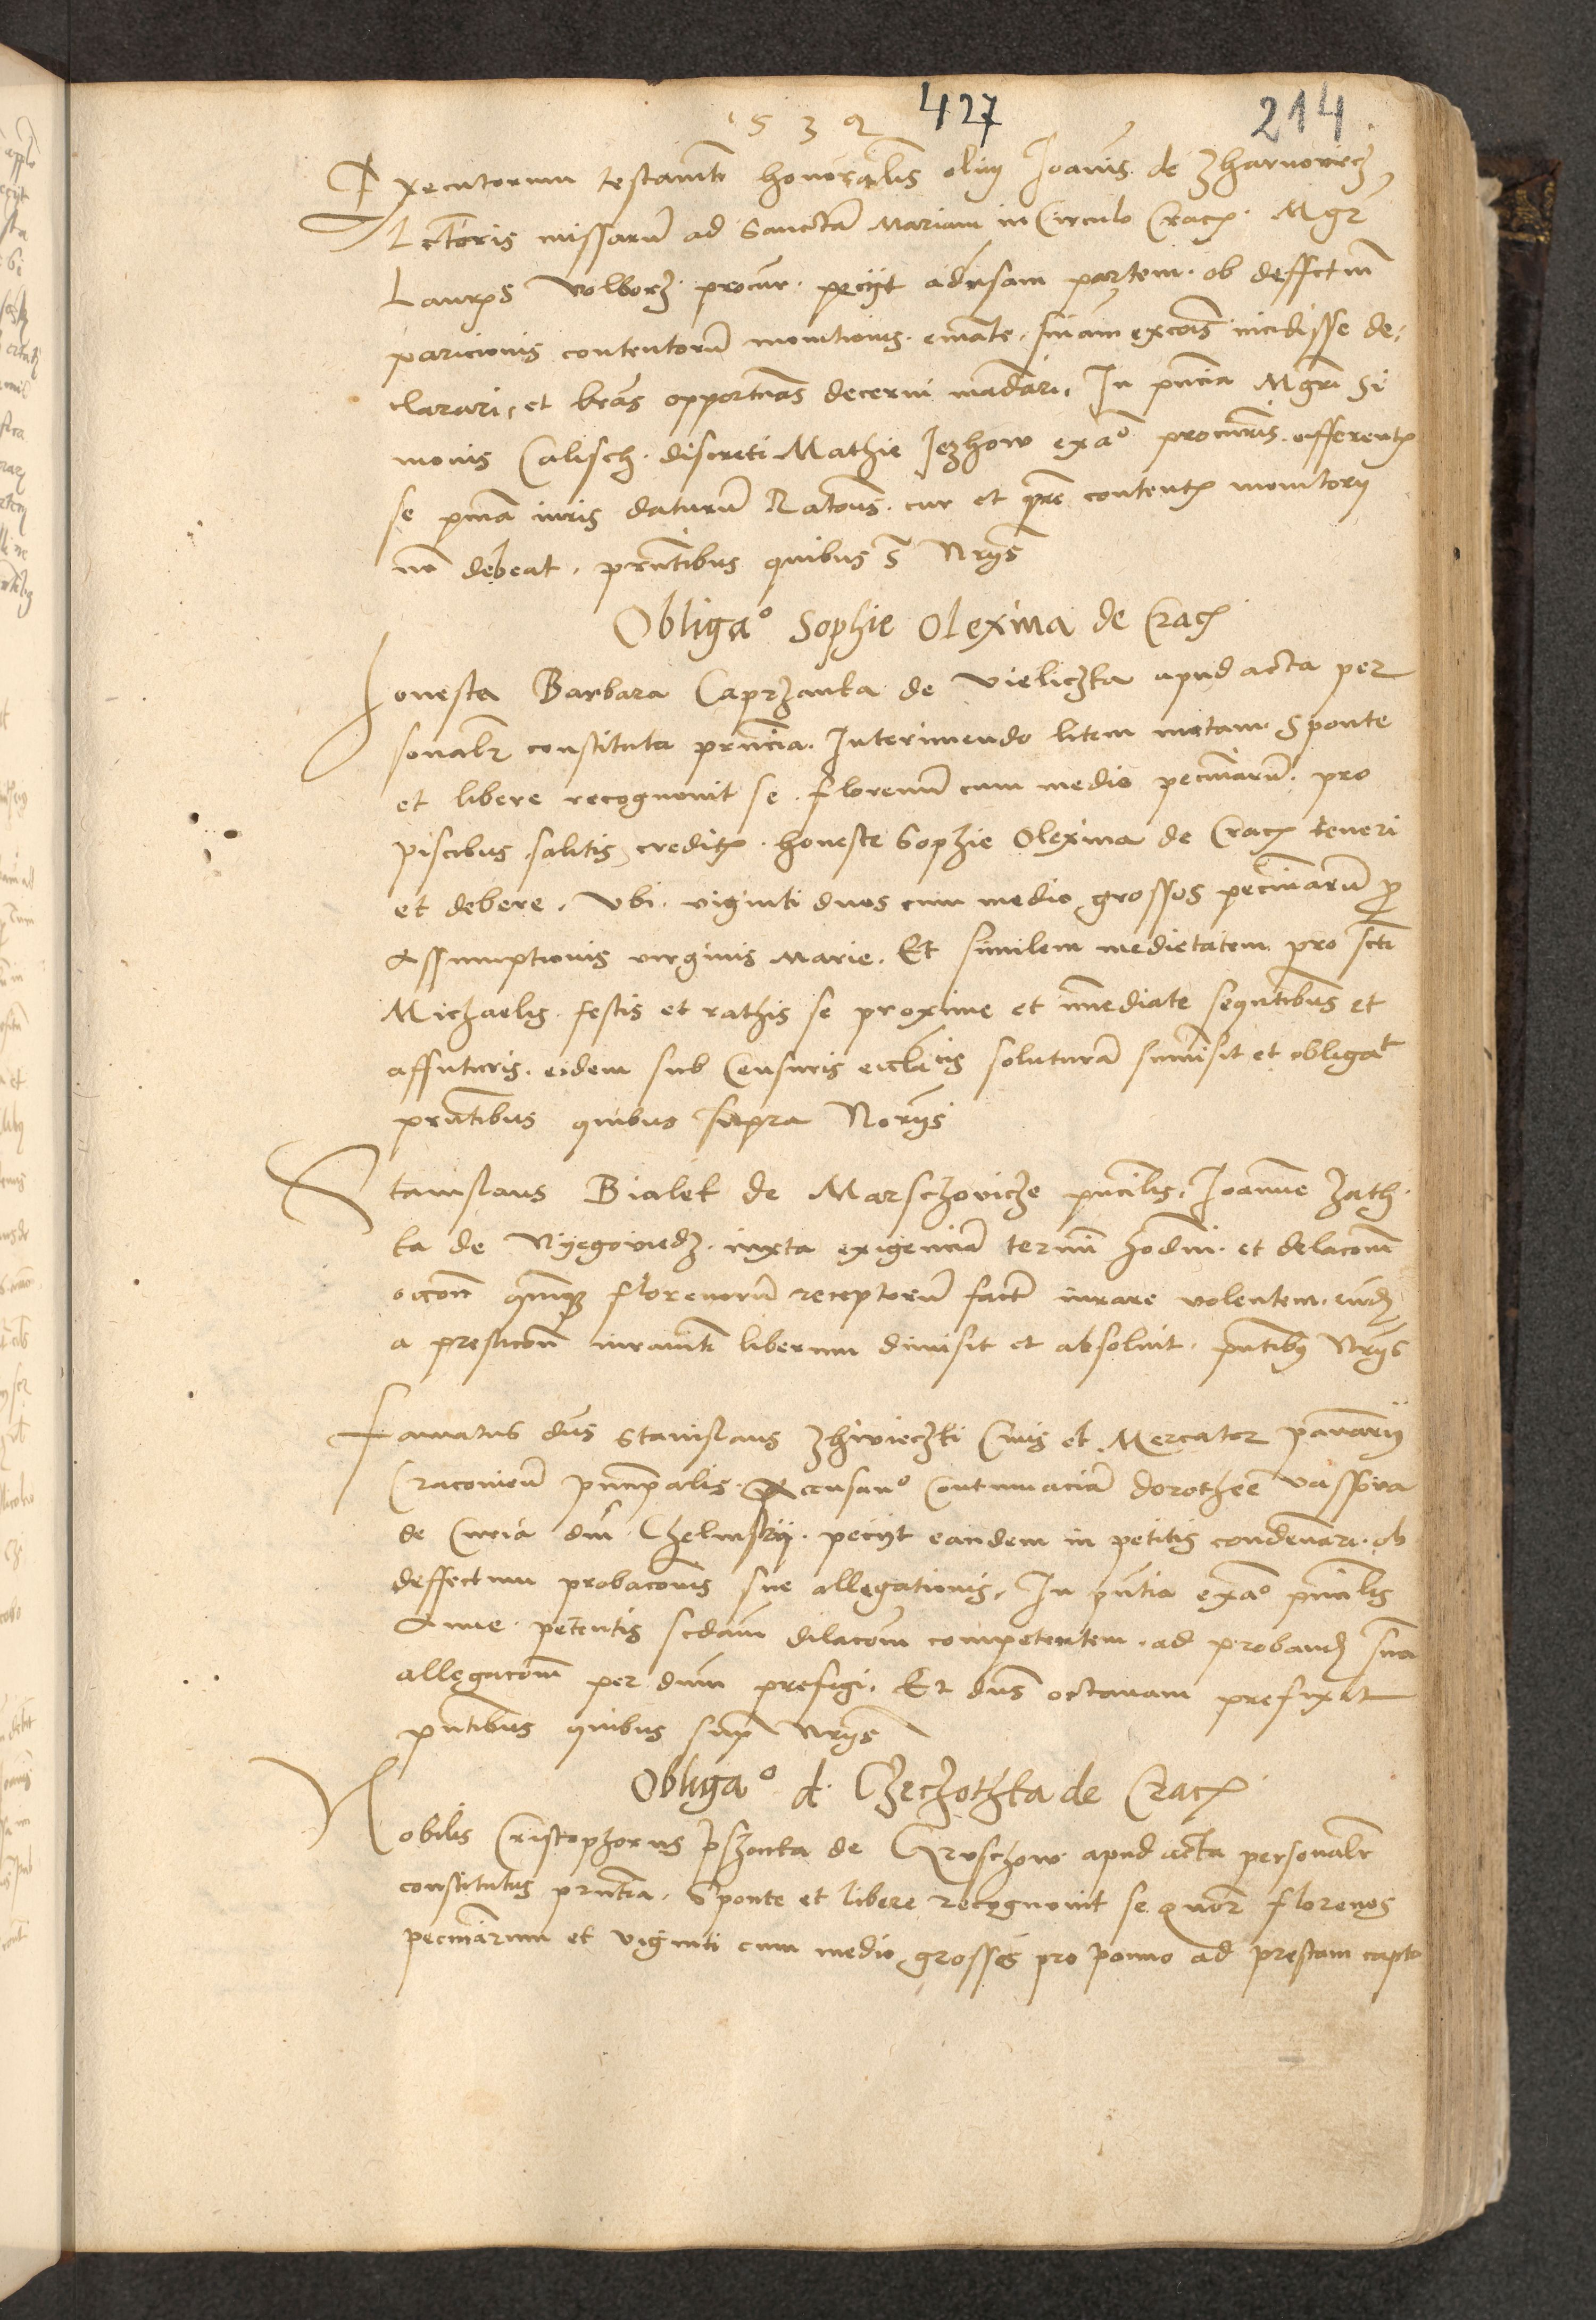 1532 427 214
Executorum testamti honorablis olim Joanis de Zharnowiecz
Lectoris missarum ad Sanctam Mariam in Circulo Crac. Mgr
Laurs Volborz procur. peciit aduersam partem ob deffctum
paricionis contentorum monitionis emate, sniam excois incidisse de-
clarari, et lras opportnas decerni mandari. In pncia Mgri Si
monis Calisch. discreti Mathie Jezhow exao procuris offerentis
se pma iuris daturum Ratones cur et prere contentis monitorii
no debeat. prntibus quibus s Nriis
Obligao Sophie Olexina de Crac
Honesta Barbara Caprzanka de Vieliczka apud acta per
sonalr constituta prncia. Interimendo litem motam sponte
et libere recognouit se florenum cum medio pecuniarum pro
piscibus salitis creditis honeste Sophie Olexina de Crac teneri
et debere. Vbi viginti duos cum medio grossos pecuniarum pro
Assumptionis virginis Marie. Et similem medietatem pro scti
Michaelis festis et rathis se proxime et immediate sequntibus et
affuturis eidem sub Censuris ecclticis soluturam summisit et obligat
prntibus quibus supra Noriis
Stanislaus Bialek de Marschovicze pncilis, Joanne Zath
ka de Nyegoviedz iuxta exigenciam termini hodni et delacom
occone quinque florenorum receptorum factam iurare volentem. eund
a prestacone iuramti liberum dimisit et absoluit. pntibus Nriis
Famatus dns Stanislaus Zhivieczki Ciuis et Mercator pannarii
Cracouien principalis Accusauo Contumaciam Dorothee Vassowa
de Curia dni Chelmskii peciit eandem in petitis condemnari ob
deffectum probacionis sue allegationis. In pntia exao pncilis
Anne petentis scdam dilacom competentem ad proband suam
allegacom per dnum prefigi. Et dns octauam prefixit
pntibus quibus sup Nriis
Obligao d. Czeczothka de Crac
Nobilis Cristophorus Pszonka de Gruschow apud acta personalr
constitutus prntia. Sponte et libere recognouit se quor florenos
pecuniarum et viginti cum medio grossos pro panno ad prestam capto